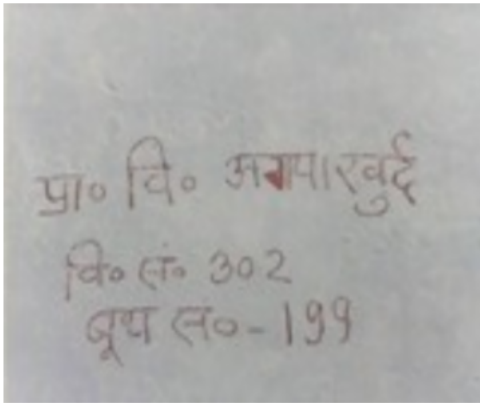 प्रा० वि० अगयाखुर्द
वि० सं० 302
बूथ स०-199